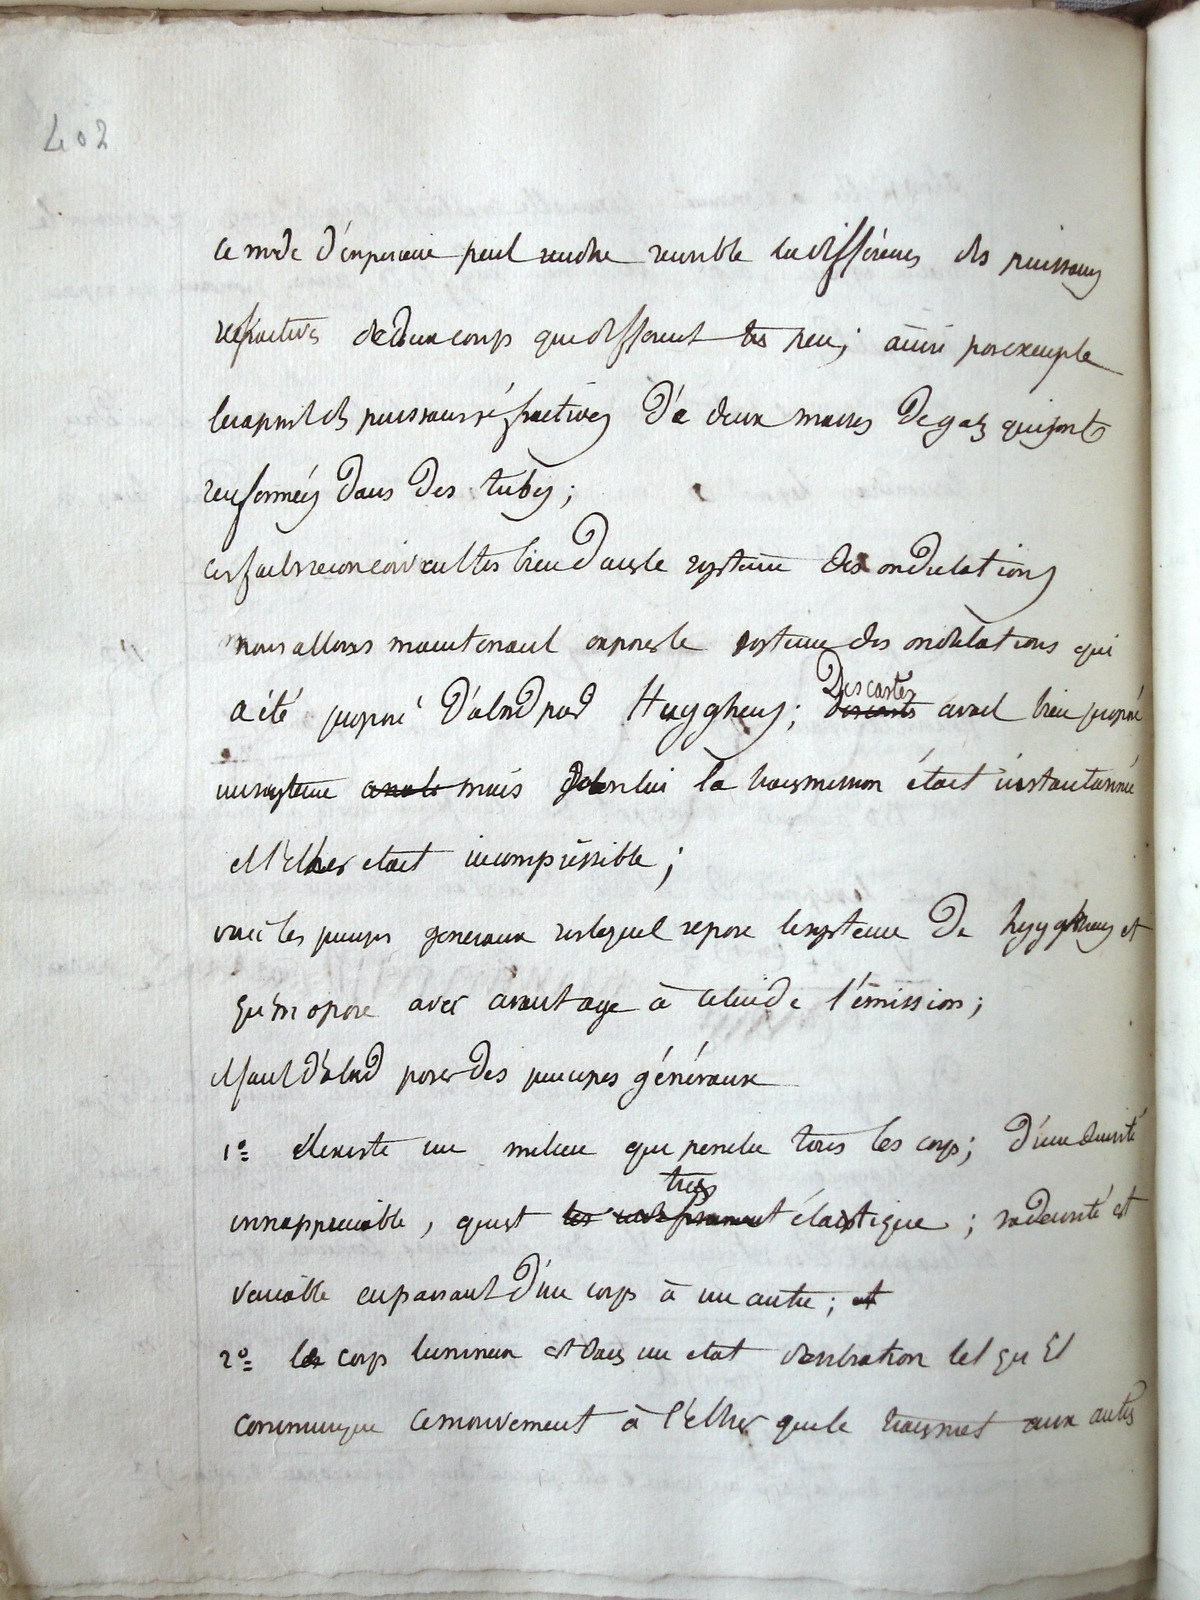 402
ce mode d'experience peut rendre sensible les differences des puissances
refractives de deux corps que different très peu; ainsi par exemple
les puissances réfractives d'a deux masses de gaz qui sont
renfermées dans des tubes;
ces faits se concoivent tres bien dans le systeme des ondulations
nous allons maintenant exposer le systeme des ondulations qui
a été proposé d'abord par Huyghens; Descartes avait bien proposé
un systeme mais selon lui la transmission était instantannée
et l'ether etait incompréssible;
voici les principes generaux sur lequel repose le systeme de hyyghens et
qu'on opose avec avantage à celui de l'émission;
il faut d'abord poser des principes généraux
1º il existe un milieu que penetre tous les corps; d'une densité
innappreciable, qui est tres élastique; sa densité est
variable en passant d'un corps à un autre; et
2º le corps lumineux est dans un etat de vibration tel qu'il
communique ce mouvement à l'ether que le transmet aux autres